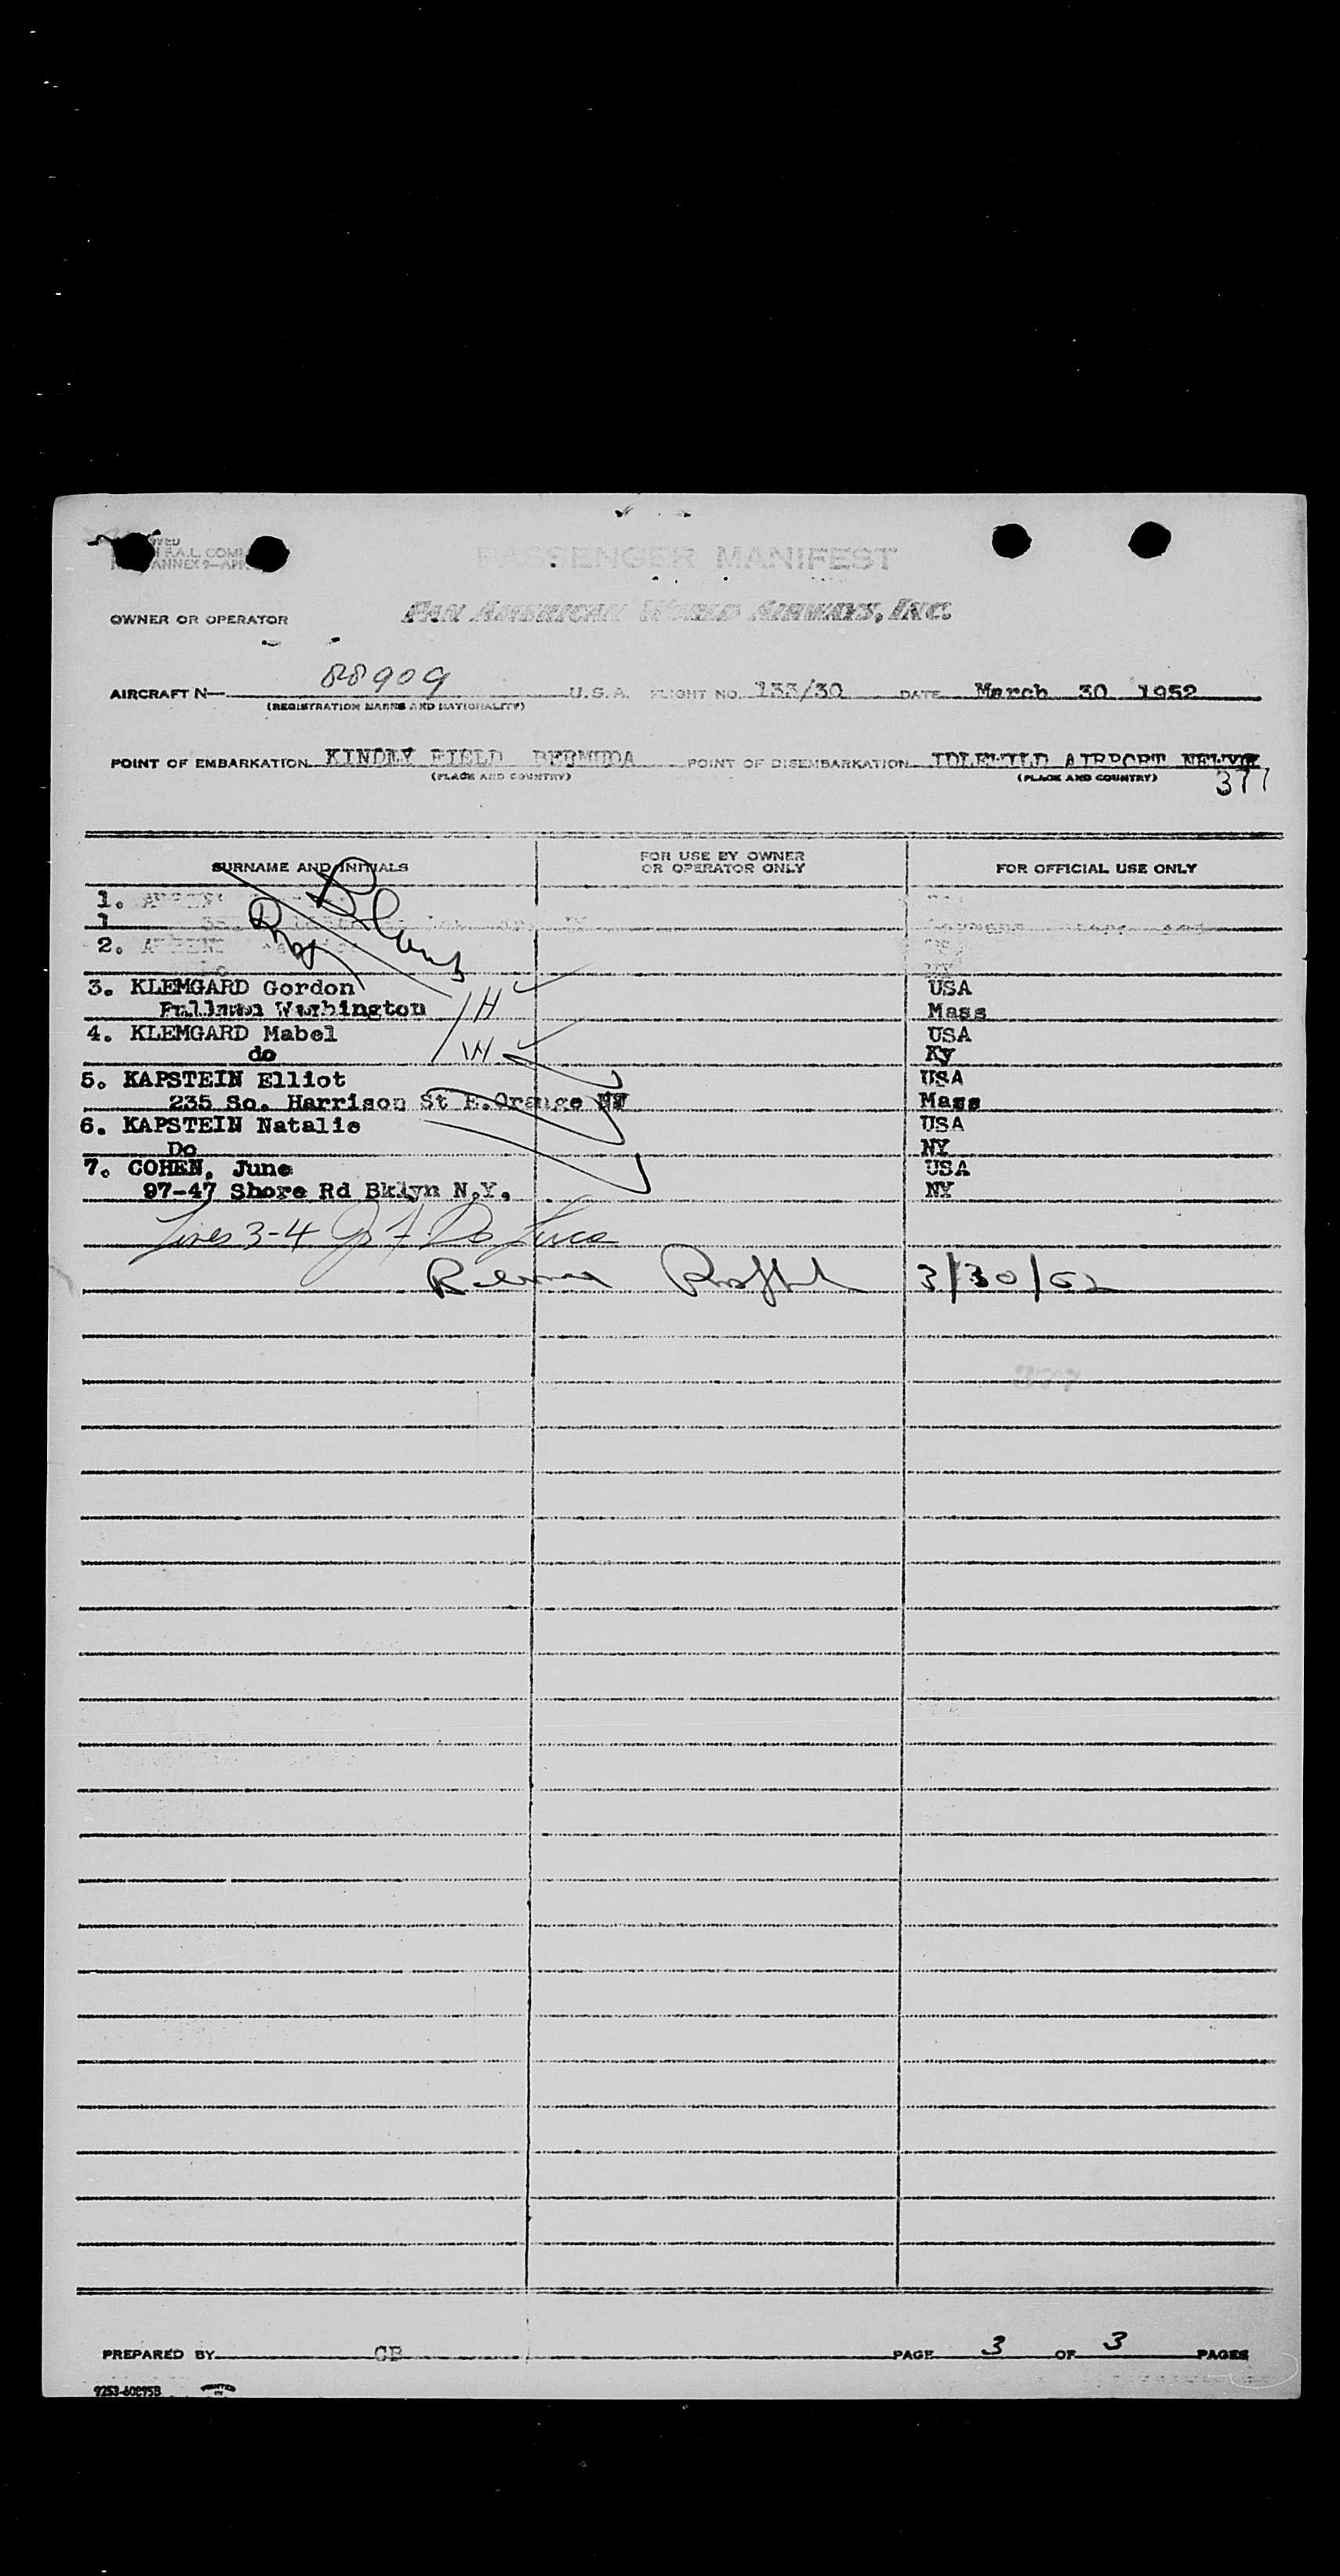 PASSENGER MANIFEST
OWNER OR OPERATOR PAN AMERICAN WORLD AIRWAYS, INC.
AIRCRAFT N— 88909 U.S.A. FLIGHT NO. 133/30 DATE March 30 1952
(REGISTRATION MARKS AND NATIONALITY)
POINT OF EMBARKATION KINDLY FIELD BERMUDA POINT OF DISEMBARKATION IDLEWILD AIRPORT NEWYK
(PLACE AND COUNTRY) (PLACE AND COUNTRY)
377
SURNAME AND INITIALS FOR USE BY OWNER OR OPERATOR ONLY FOR OFFICIAL USE ONLY
1.
1
2.
3. KLEMGARD Gordon USA
Pullman Washington Mass
4. KLEMGARD Mabel USA
do Ky
5. KAPSTEIN Elliot USA
235 So. Harrison St E.Orange NJ Mass
6. KAPSTEIN Natalie USA
Do NY
7. COHEN, June USA
97-47 Shore Rd Bklyn N.Y. NY
Lines 3-4
3/30/52
377
PREPARED BY CB PAGE 3 OF 3 PAGES